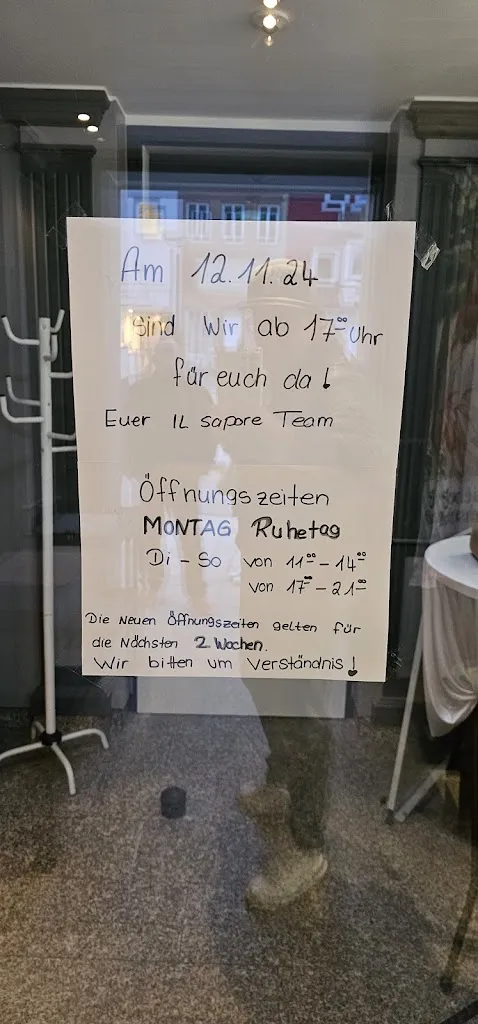 Am 12.11.24
sind Wir ab 17°° Uhr
für euch da!
Euer IL sapore Team
Öffnungszeiten
MONTAG Ruhetag
Di - So von 11°° - 14°°
von 17°° - 21°°
Die Neuen Öffnungszeiten gelten für
die Nächsten 2 Wochen.
Wir bitten um Verständnis!